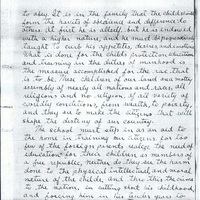 to obey. It is in the family that the child must
form the habits of obedience and deference to
others. If fault he is selfish, but he is endowed
with a higher nature, and he must be
taught to curb his appetite, desires, and
What is done for the child's intellect,
and training in the duties of manhood is
the measure accomplished for the race that
is to be. The children of our land are made
assembly of nearly all nations and races, all
religions and no religion, of all variety of
worldly conditions, from wealth to poverty,
and they are to make the citizens that will
shape the destiny of our country.
The school must step in as an aid to
the home in training our citizens. For too
few of the foreign parents realize the need of
education for their children as members of
a free republic. Neither do they see the harm
done to the physical, intellectual and moral
nature of the child, and thus this crime
to the nation, in cutting short his childhood,
and forcing him in his tender years to